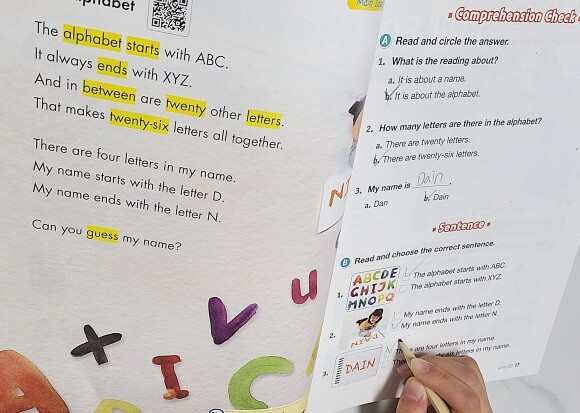 phabet
The alphabet starts with ABC.
It always ends with XYZ.
And in between are twenty other letters.
That makes twenty-six letters all together.
There are four letters in my name.
My name starts with the letter D.
My name ends with the letter N.
Can you guess my name?
Main Idea
Comprehension Check
A Read and circle the answer.
1. What is the reading about?
a. It is about a name.
b. It is about the alphabet.
2. How many letters are there in the alphabet?
a. There are twenty letters.
b. There are twenty-six letters.
3. My name is Dain.
a. Dan
b. Dain
Sentence
B Read and choose the correct sentence.
1.
ABCDE
GHIJK
MNOPQ
The alphabet starts with ABC.
The alphabet starts with XYZ.
2.
My name ends with the letter D.
My name ends with the letter N.
3.
DAIN
are four letters in my name.
six letters in my name.
17